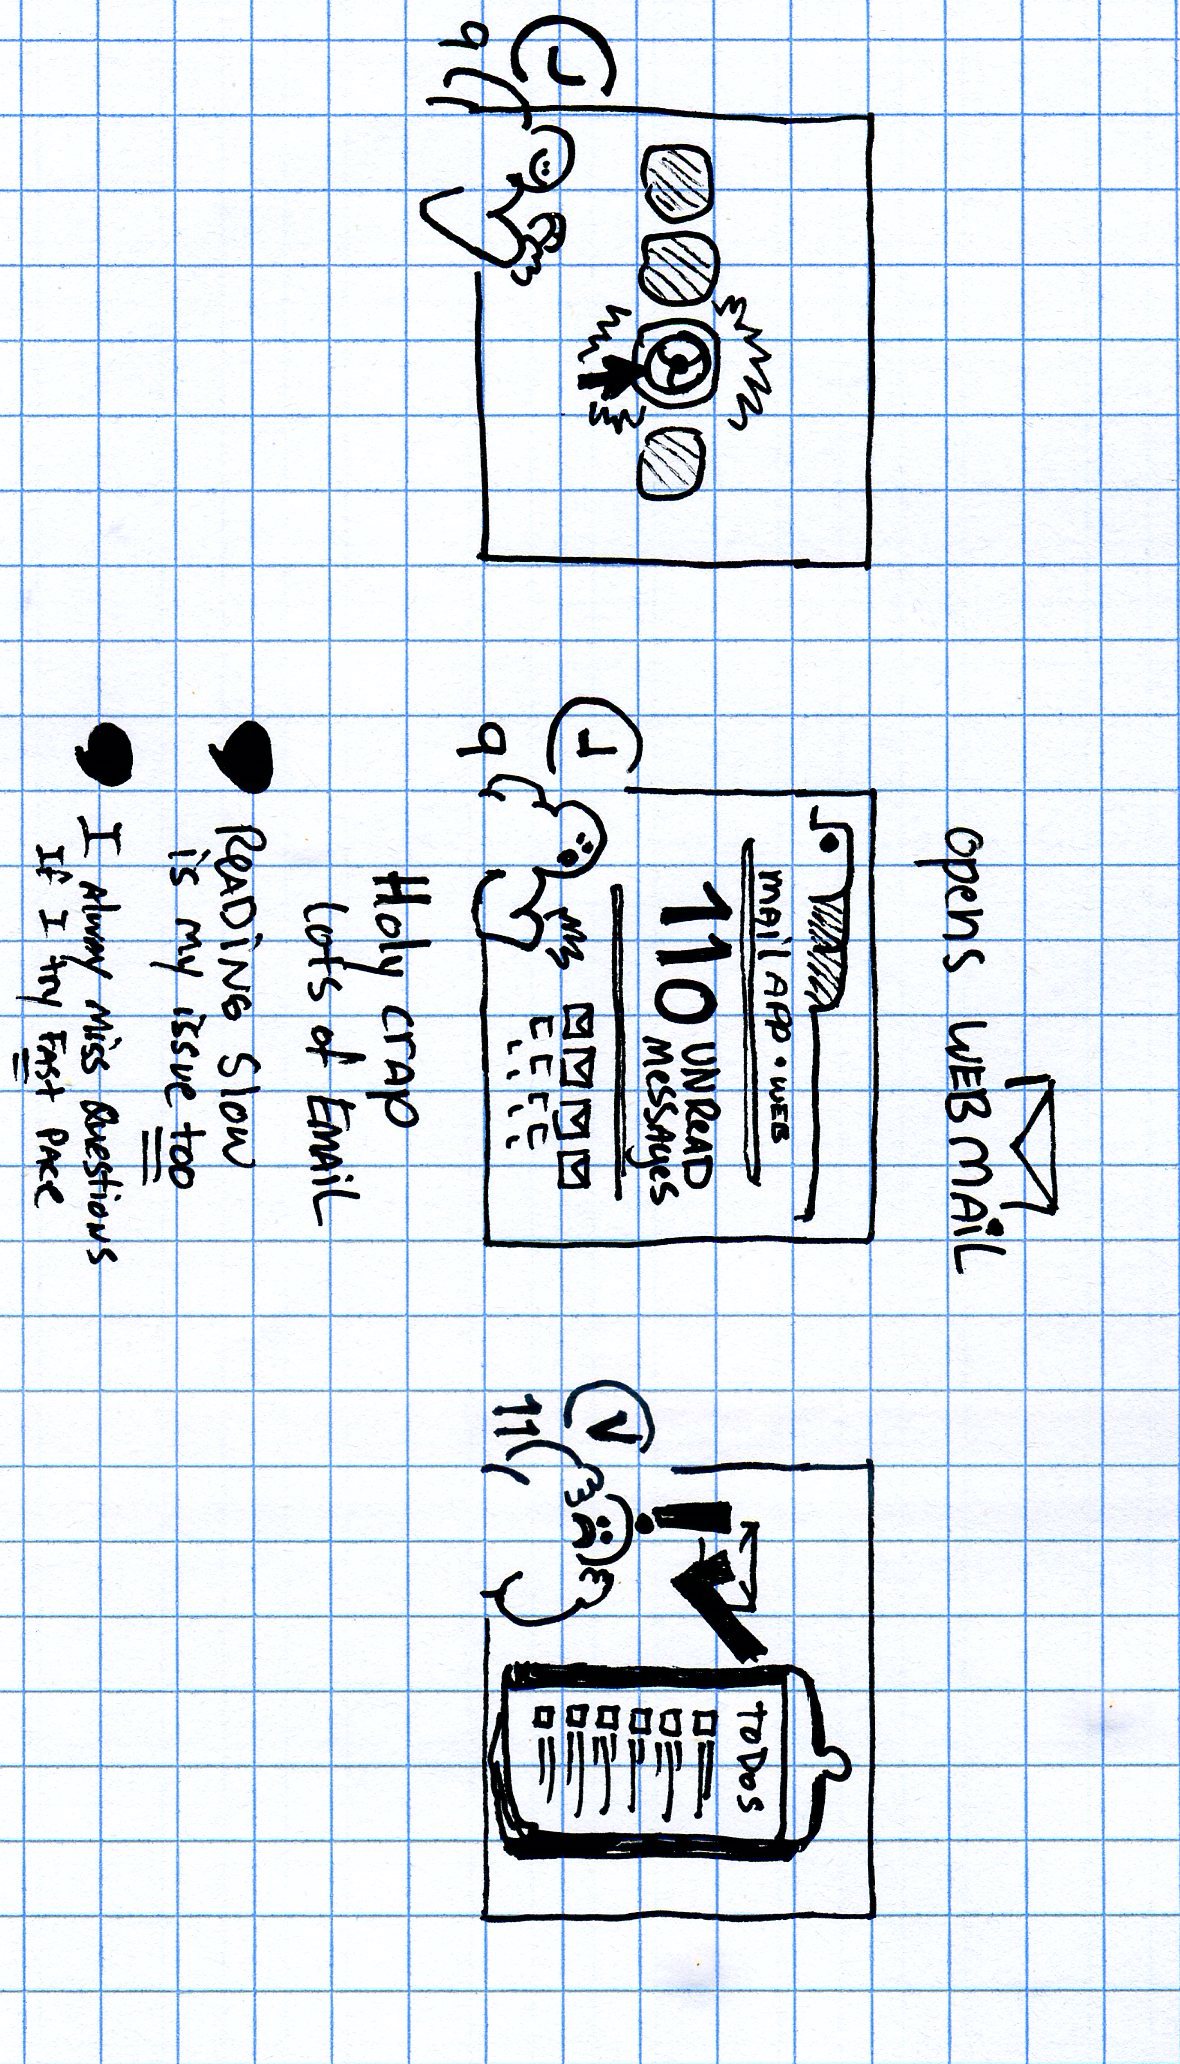 Opens WEBMAiL
9
MAiL APP • WEB
110 UNREAD
MESSAGES
9
ToDos
11
Holy crap
Lots of EMAiL
READiNG Slow
is my issue too
I Alway Miss Questions
If I try FAST PACE